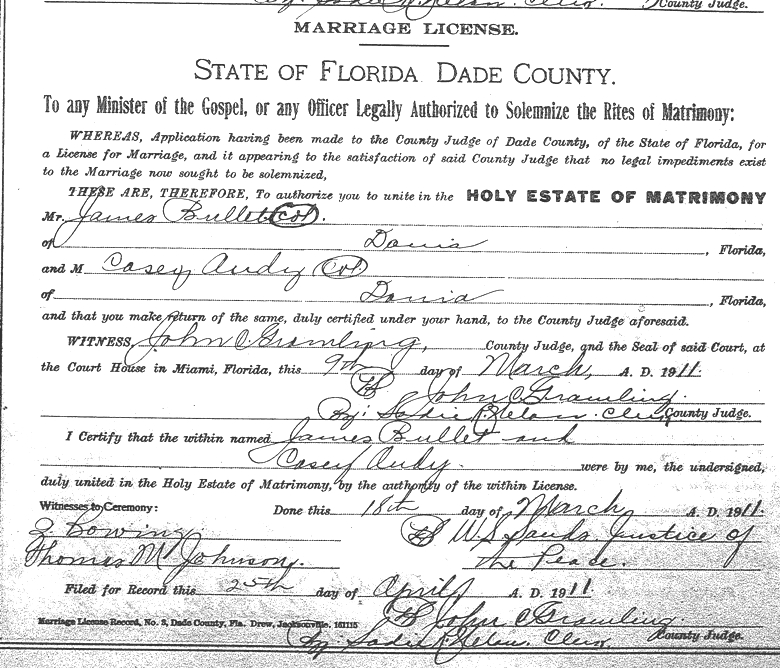 County Judge.
MARRIAGE LICENSE.
STATE OF FLORIDA DADE COUNTY.
To any Minister of the Gospel, or any Officer Legally Authorized to Solemnize the Rites of Matrimony:
WHEREAS, Application having been made to the County Judge of Dade County, of the State of Florida, for
a License for Marriage, and it appearing to the satisfaction of said County Judge that no legal impediments exist
to the Marriage now sought to be solemnized,
THESE ARE, THEREFORE, To authorize you to unite in the HOLY ESTATE OF MATRIMONY
Mr. James Bullet (Col).
of Dania, Florida,
and M Casey Andy (Col)
of Dania, Florida,
and that you make return of the same, duly certified under your hand, to the County Judge aforesaid.
WITNESS, John C Gramling, County Judge, and the Seal of said Court, at
the Court House in Miami, Florida, this 9th day of March, A. D. 1911.
John C Gramling.
By: Sadie Clerk County Judge.
I Certify that the within named James Bullet and
Casey Andy. were by me, the undersigned,
duly united in the Holy Estate of Matrimony, by the authority of the within License.
Witnesses to Ceremony: Done this 18th day of March A. D. 1911.
Z Bowing W.S. Sands Justice of
Thomas M Johnson. the Peace.
Filed for Record this 25th day of April A. D. 1911
John C Gramling
Marriage License Record, No. 3, Dade County, Fla. Drew, Jacksonville, 161115 County Judge.
By Sadie Clerk.